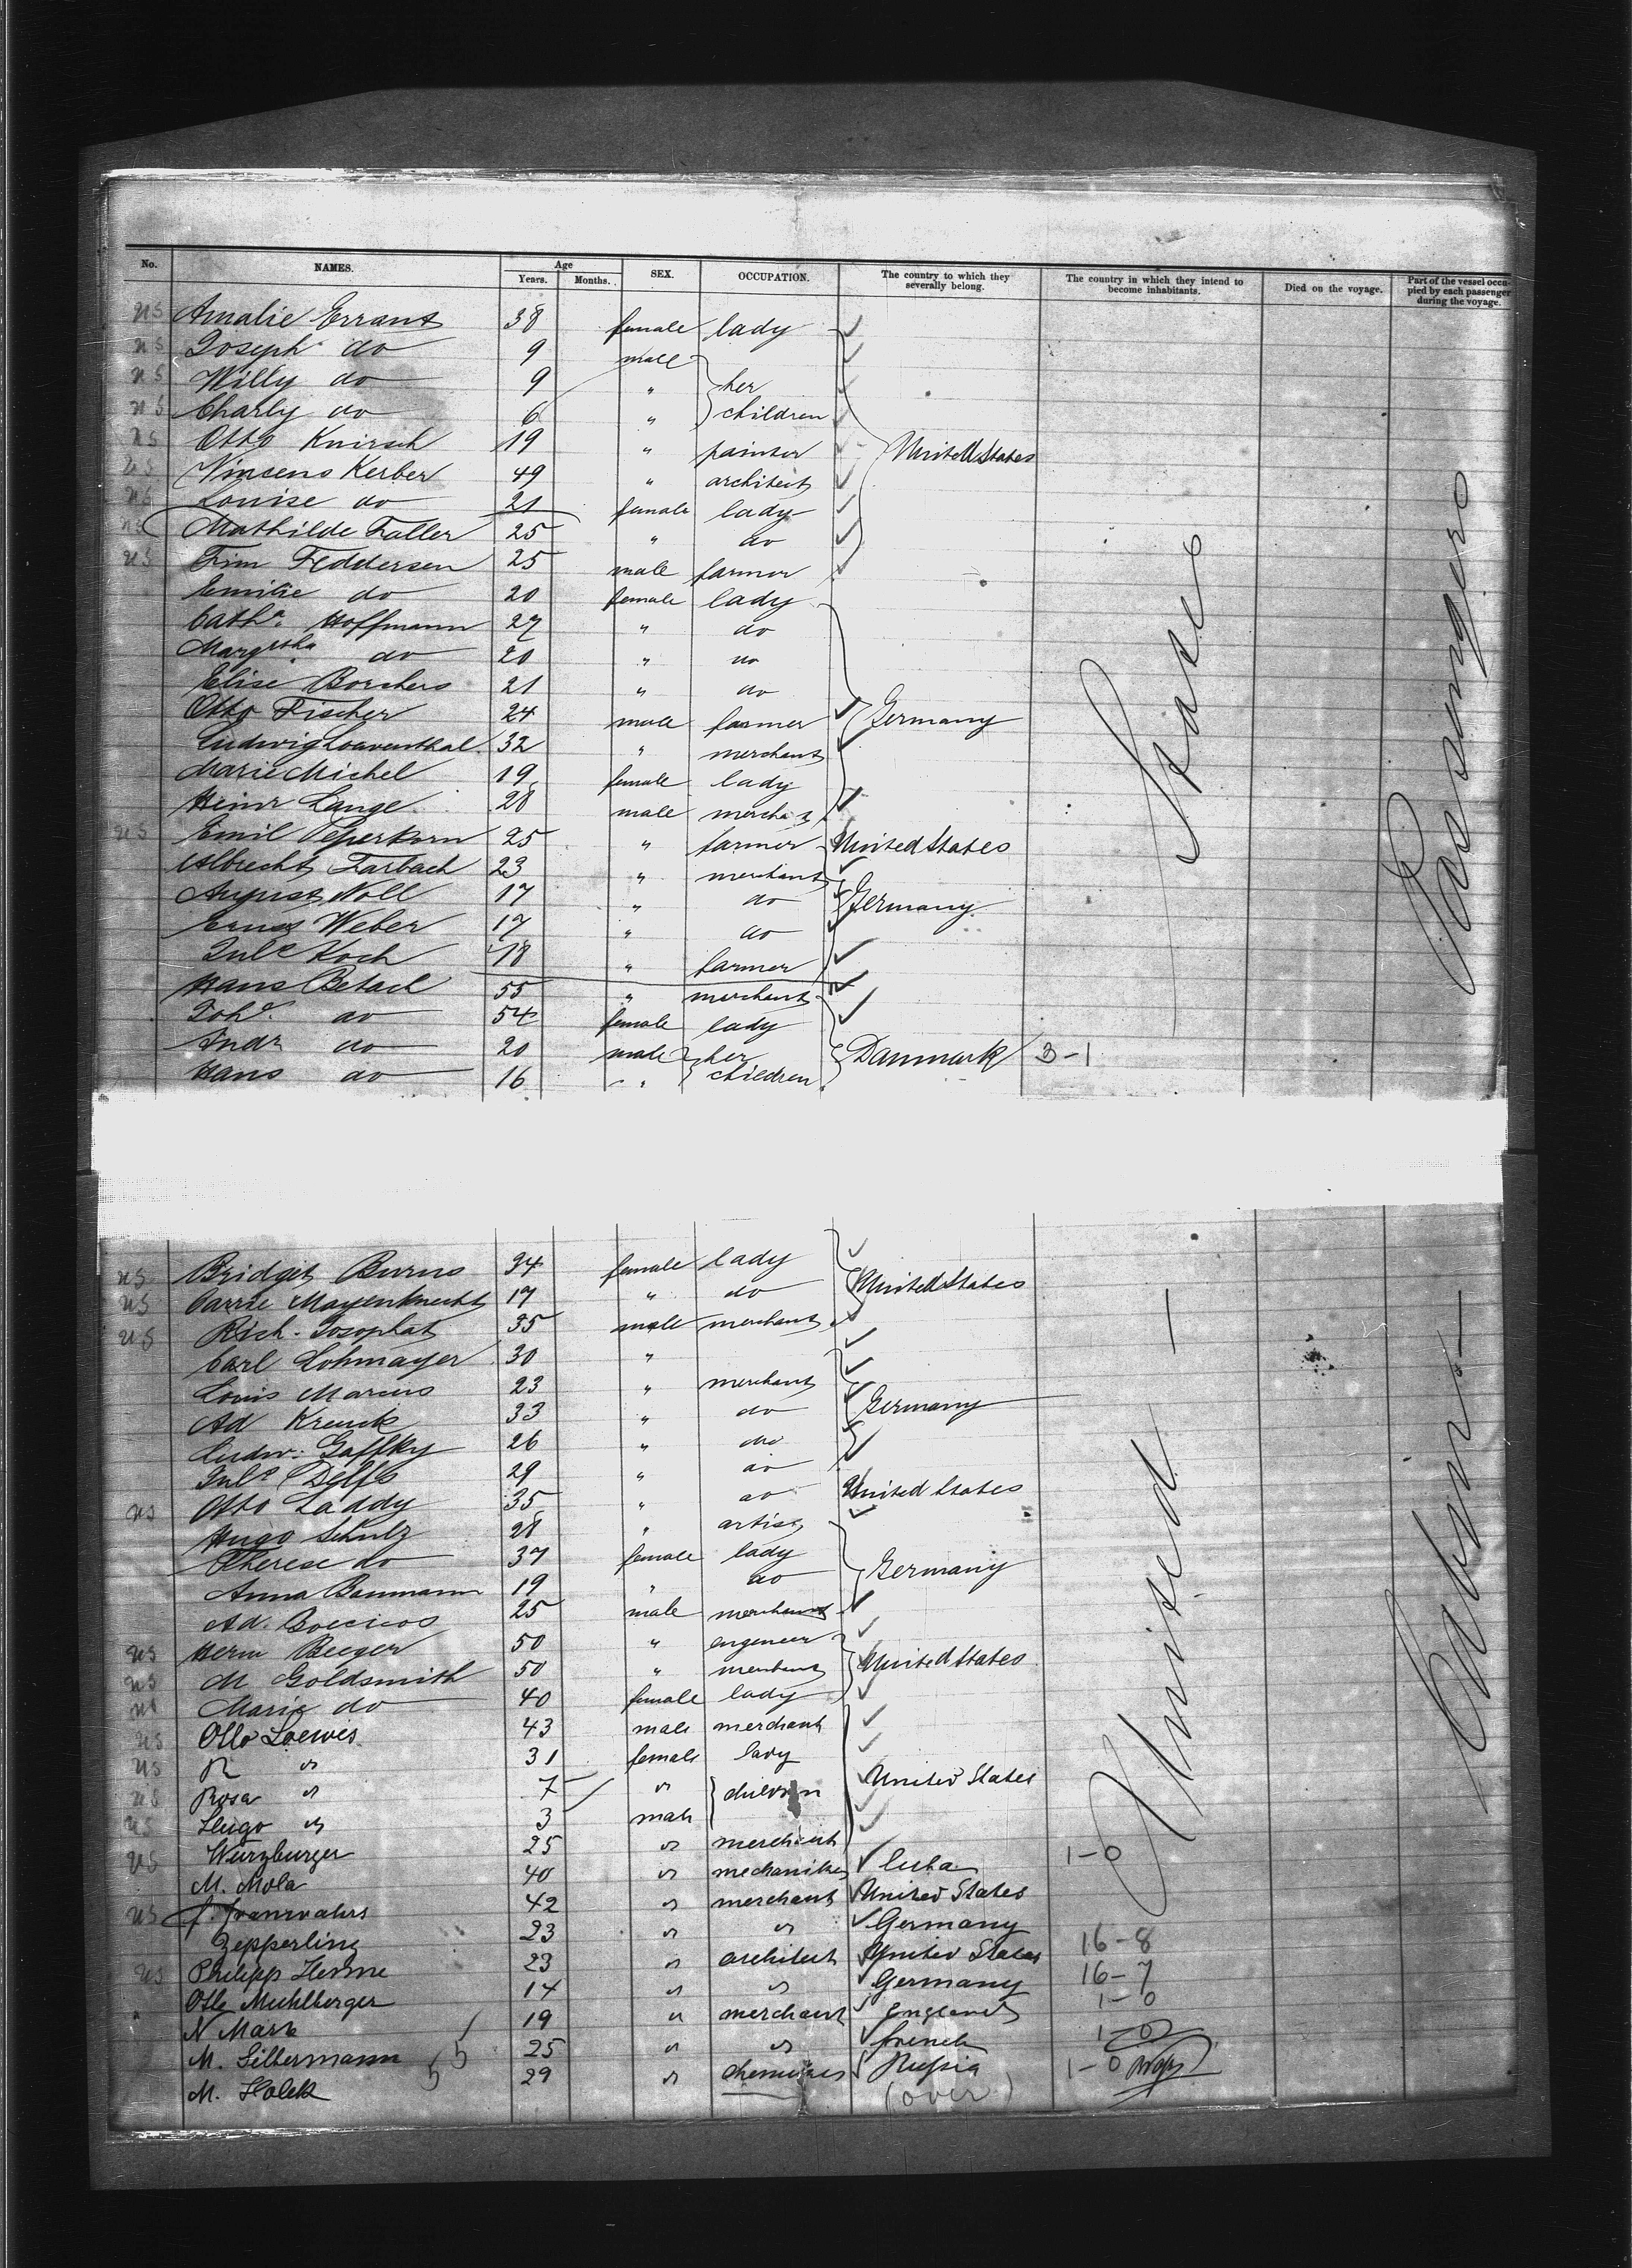 No. NAMES. Age Years. Months. SEX. OCCUPATION. The country to which they severally belong. The country in which they intend to become inhabitants. Died on the voyage. Part of the vessel occupied by each passenger during the voyage.
US Amalie Errant 38 female lady
US Joseph do 9 male
US Willy do 9 " her
US Charly do 6 " children
US Otto Knirsch 19 " painter United States
US Vincens Kerber 49 " architect
US Louise do 21 female lady
US Mathilde Faller 25 " do
US Tim Feddersen 25 male farmer
Emilie do 20 female lady
Catha. Hoffmann 27 " do
Margretha do 20 " do
Elise Borchers 21 " do
Otto Fischer 24 male farmer Germany
Ludwig Loewenthal 32 " merchant
Marie Michel 19 female lady
Heinr Lange 28 male merchant
US Emil Peperkorn 25 " farmer United States
Albrecht Farbach 23 " merchant
August Noll 17 " do Germany
Ernst Weber 17 " do
Juls Koch 18 " farmer
Hans Betack 55 " merchant
Joh. do 54 female lady
Andr do 20 male her Danmark 3-1
Hans do 16 " children
States
Passengers
US Bridget Burns 34 female lady
US Carrie Mayenknecht 17 " do United States
US Rich. Josophat 35 male merchant
Carl Lohmayer 30 "
Louis Marcus 23 " merchant
Ad Krenck 33 " do Germany
Ludw. Gaffky 26 " do
Juls Delfs 29 " do
US Otto Laddy 35 " do United States
Hugo Schulz 28 " artist
Therese do 37 female lady
Anna Baumann 19 " do Germany
Ad. Boecicos 25 male merchant
US Herm Beeger 50 " engeneer
US M Goldsmith 50 " merchant United States
US Marie do 40 female lady
US Otto Loewes 43 male merchant
US R " 31 female lady
US Rosa " 7 " children United States
US Hugo " 3 male
US Wurzburger 25 " merchant
M. Mola 40 " mechaniker Cuba 1-0
US 42 " merchant United States
Zepperling 23 " " Germany 16-8
US Philipp Henne 23 " architect United States 16-7
Otto Muhlberger 14 " " Germany
N Mark 19 " merchant England 1-0
M. Silbermann 25 " " french 1-0
M. Holek 29 " Russia 1-0
(over)
United
Cabin